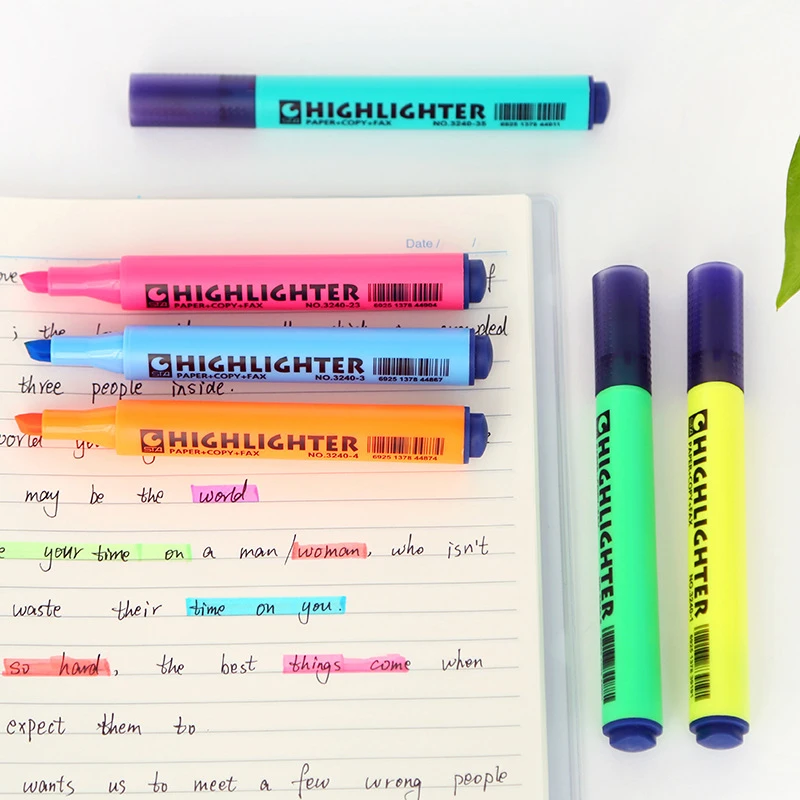 HIGHLIGHTER
PAPER+COPY+FAX NO.3240-35 6925 1378 44911
Date / /
HIGHLIGHTER
STA PAPER+COPY+FAX NO.3240-23 6925 1378 44904
; the
HIGHLIGHTER
STA PAPER+COPY+FAX NO.3240-3 6925 1378 44867
three people inside.
HIGHLIGHTER
STA PAPER+COPY+FAX NO.3240-4 6925 1378 44874
world
may be the world
your time on a man/woman, who isn't
waste their time on you.
so hard, the best things come when
expect them to
wants us to meet a few wrong people
HIGHLIGHTER
HIGHLIGHTER
PAPER+COPY+FAX NO.3240-1